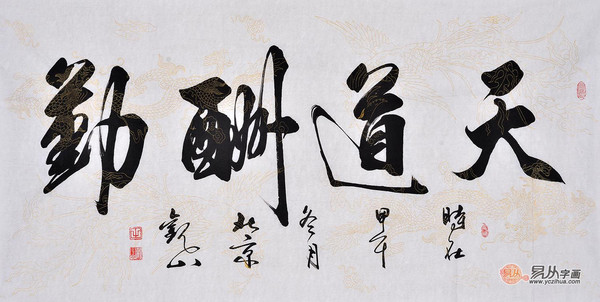 天道酬勤
時在
甲午
冬月
北京
觀山
易从字画
www.yczihua.com